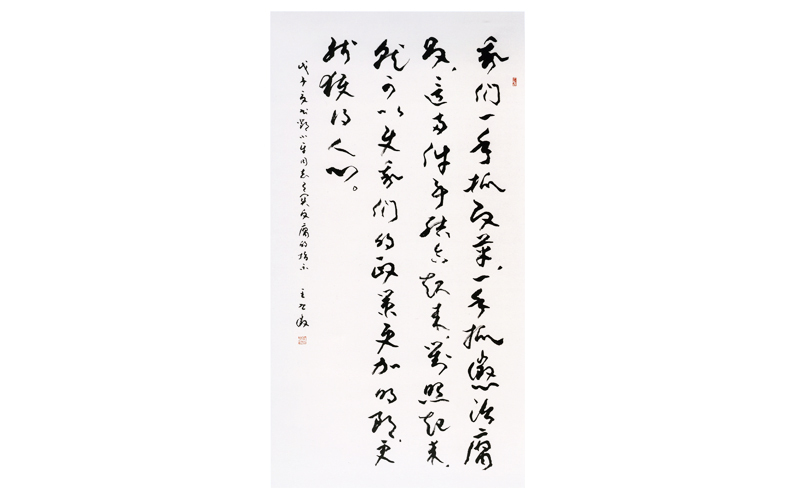 我们一手抓改革,一手抓惩治腐
败,这两件事结合起来,对照起来,
就可以使我们的政策更加明朗,更
能获得人心。
戊寅夏书邓小平同志有关反腐的指示